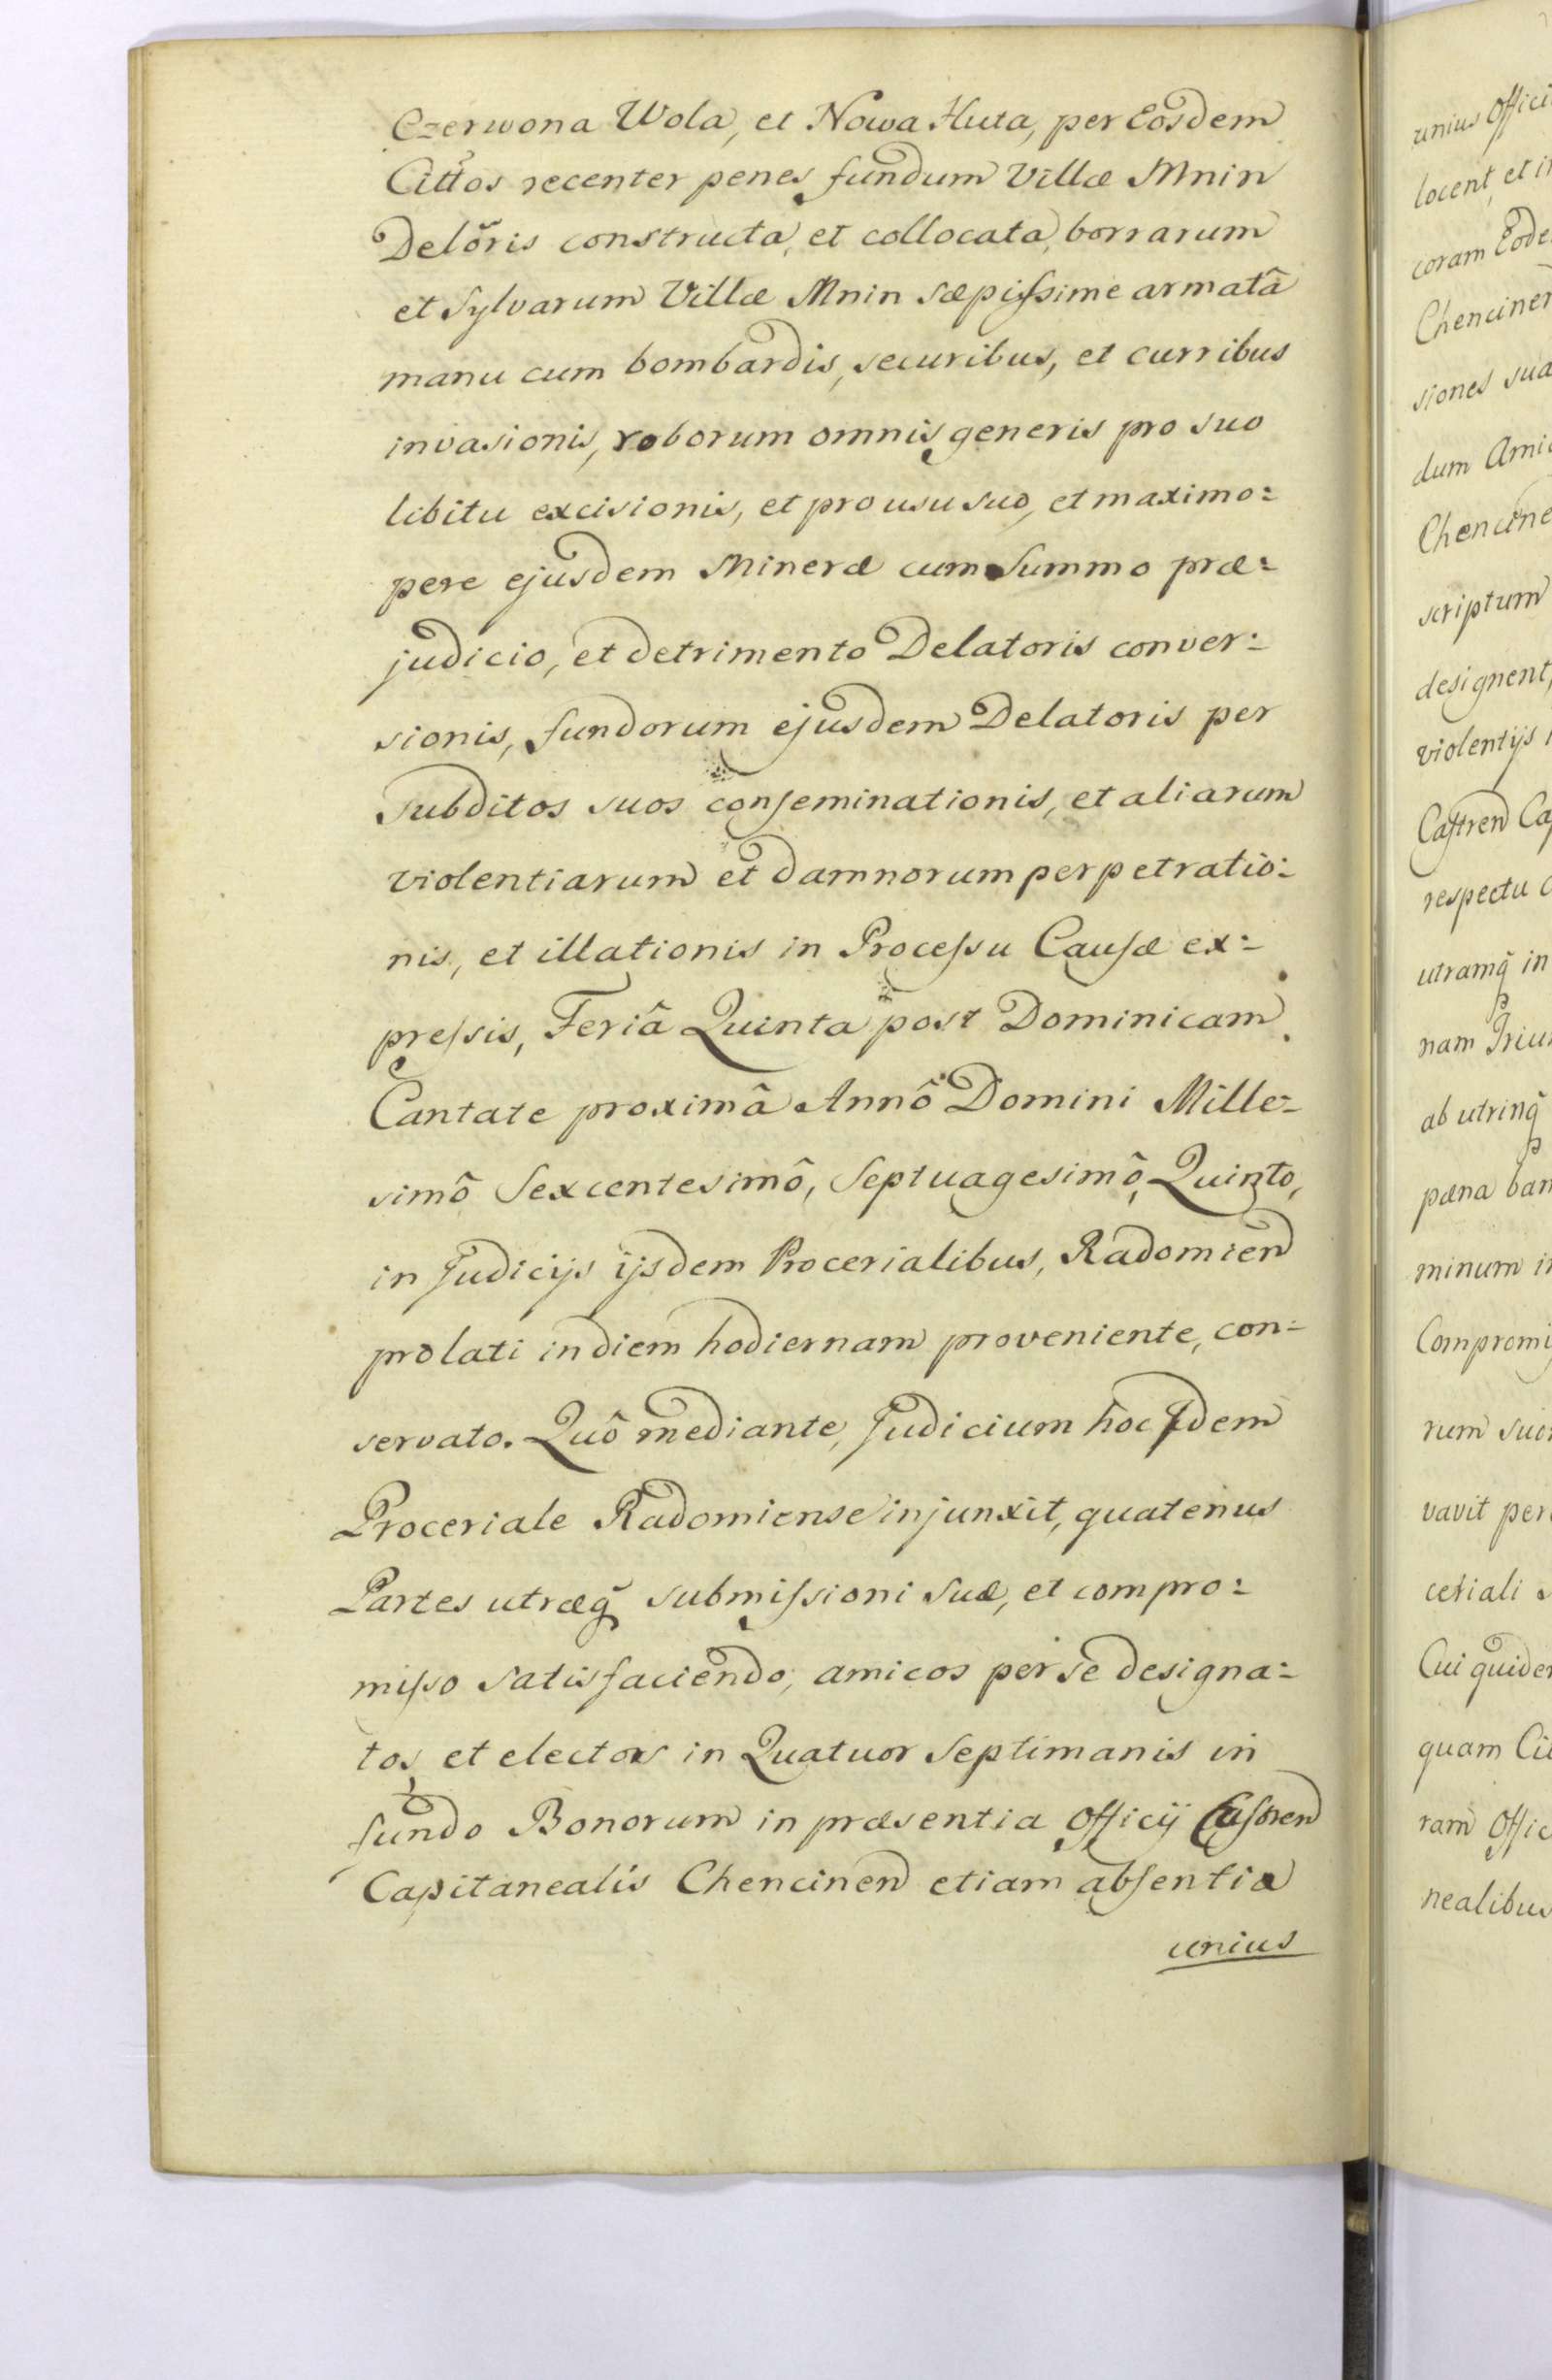 Czerwona Wola, et Nowa Huta, per Eosdem
Cittos recenter penes fundum Villæ Mnin
Delõris constructa, et collocata, borrarum
et Sylvarum Villæ Mnin sæpiſsime armatâ
manu cum bombardis, securibus, et curribus
invasionis, roborum omnis generis pro suo
libitu excisionis, et pro usu suo, et maximo=
pere ejusdem Mineræ cum Summo præ=
judicio, et detrimento Delatoris conver=
sionis, fundorum ejusdem Delatoris per
subditos suos conſeminationis, et aliarum
violentiarum et damnorum perpetratio=
nis, et illationis in Proceſsu Cauſæ ex=
preſsis, Feriâ Quinta post Dominicam
Cantate proximâ Annô Domini Mille=
simô Sexcentesimô, Septuagesimô, Quinto,
in Judicijs ijsdem Procerialibus, Radomien
prolati in diem hodiernam proveniente, con=
servato. Quô mediante, Judicium hoc Idem
Proceriale Radomiense injunxit, quatenus
Partes utræq̃ submiſsioni suæ, et compro=
miſso satisfaciendo, amicos per se designa=
tos et electos in Quatuor Septimanis in
fundo Bonorum in præsentia Officij Caſtren
Capitanealis Chencinen etiam abſentia
unius
unius Offici
locent, et i
coram Eode
Chenciner
siones sua
dum Ami
Chencine
scriptum
designent,
violentijs
Caſtren Ca
respectu
utramq̃ in
nam Triu
ab utrinq̃
pæna ban
minum i
Compromi
rum suo
vavit per
ceriali
Cui quide
quam Ci
ram Offic
nealibus